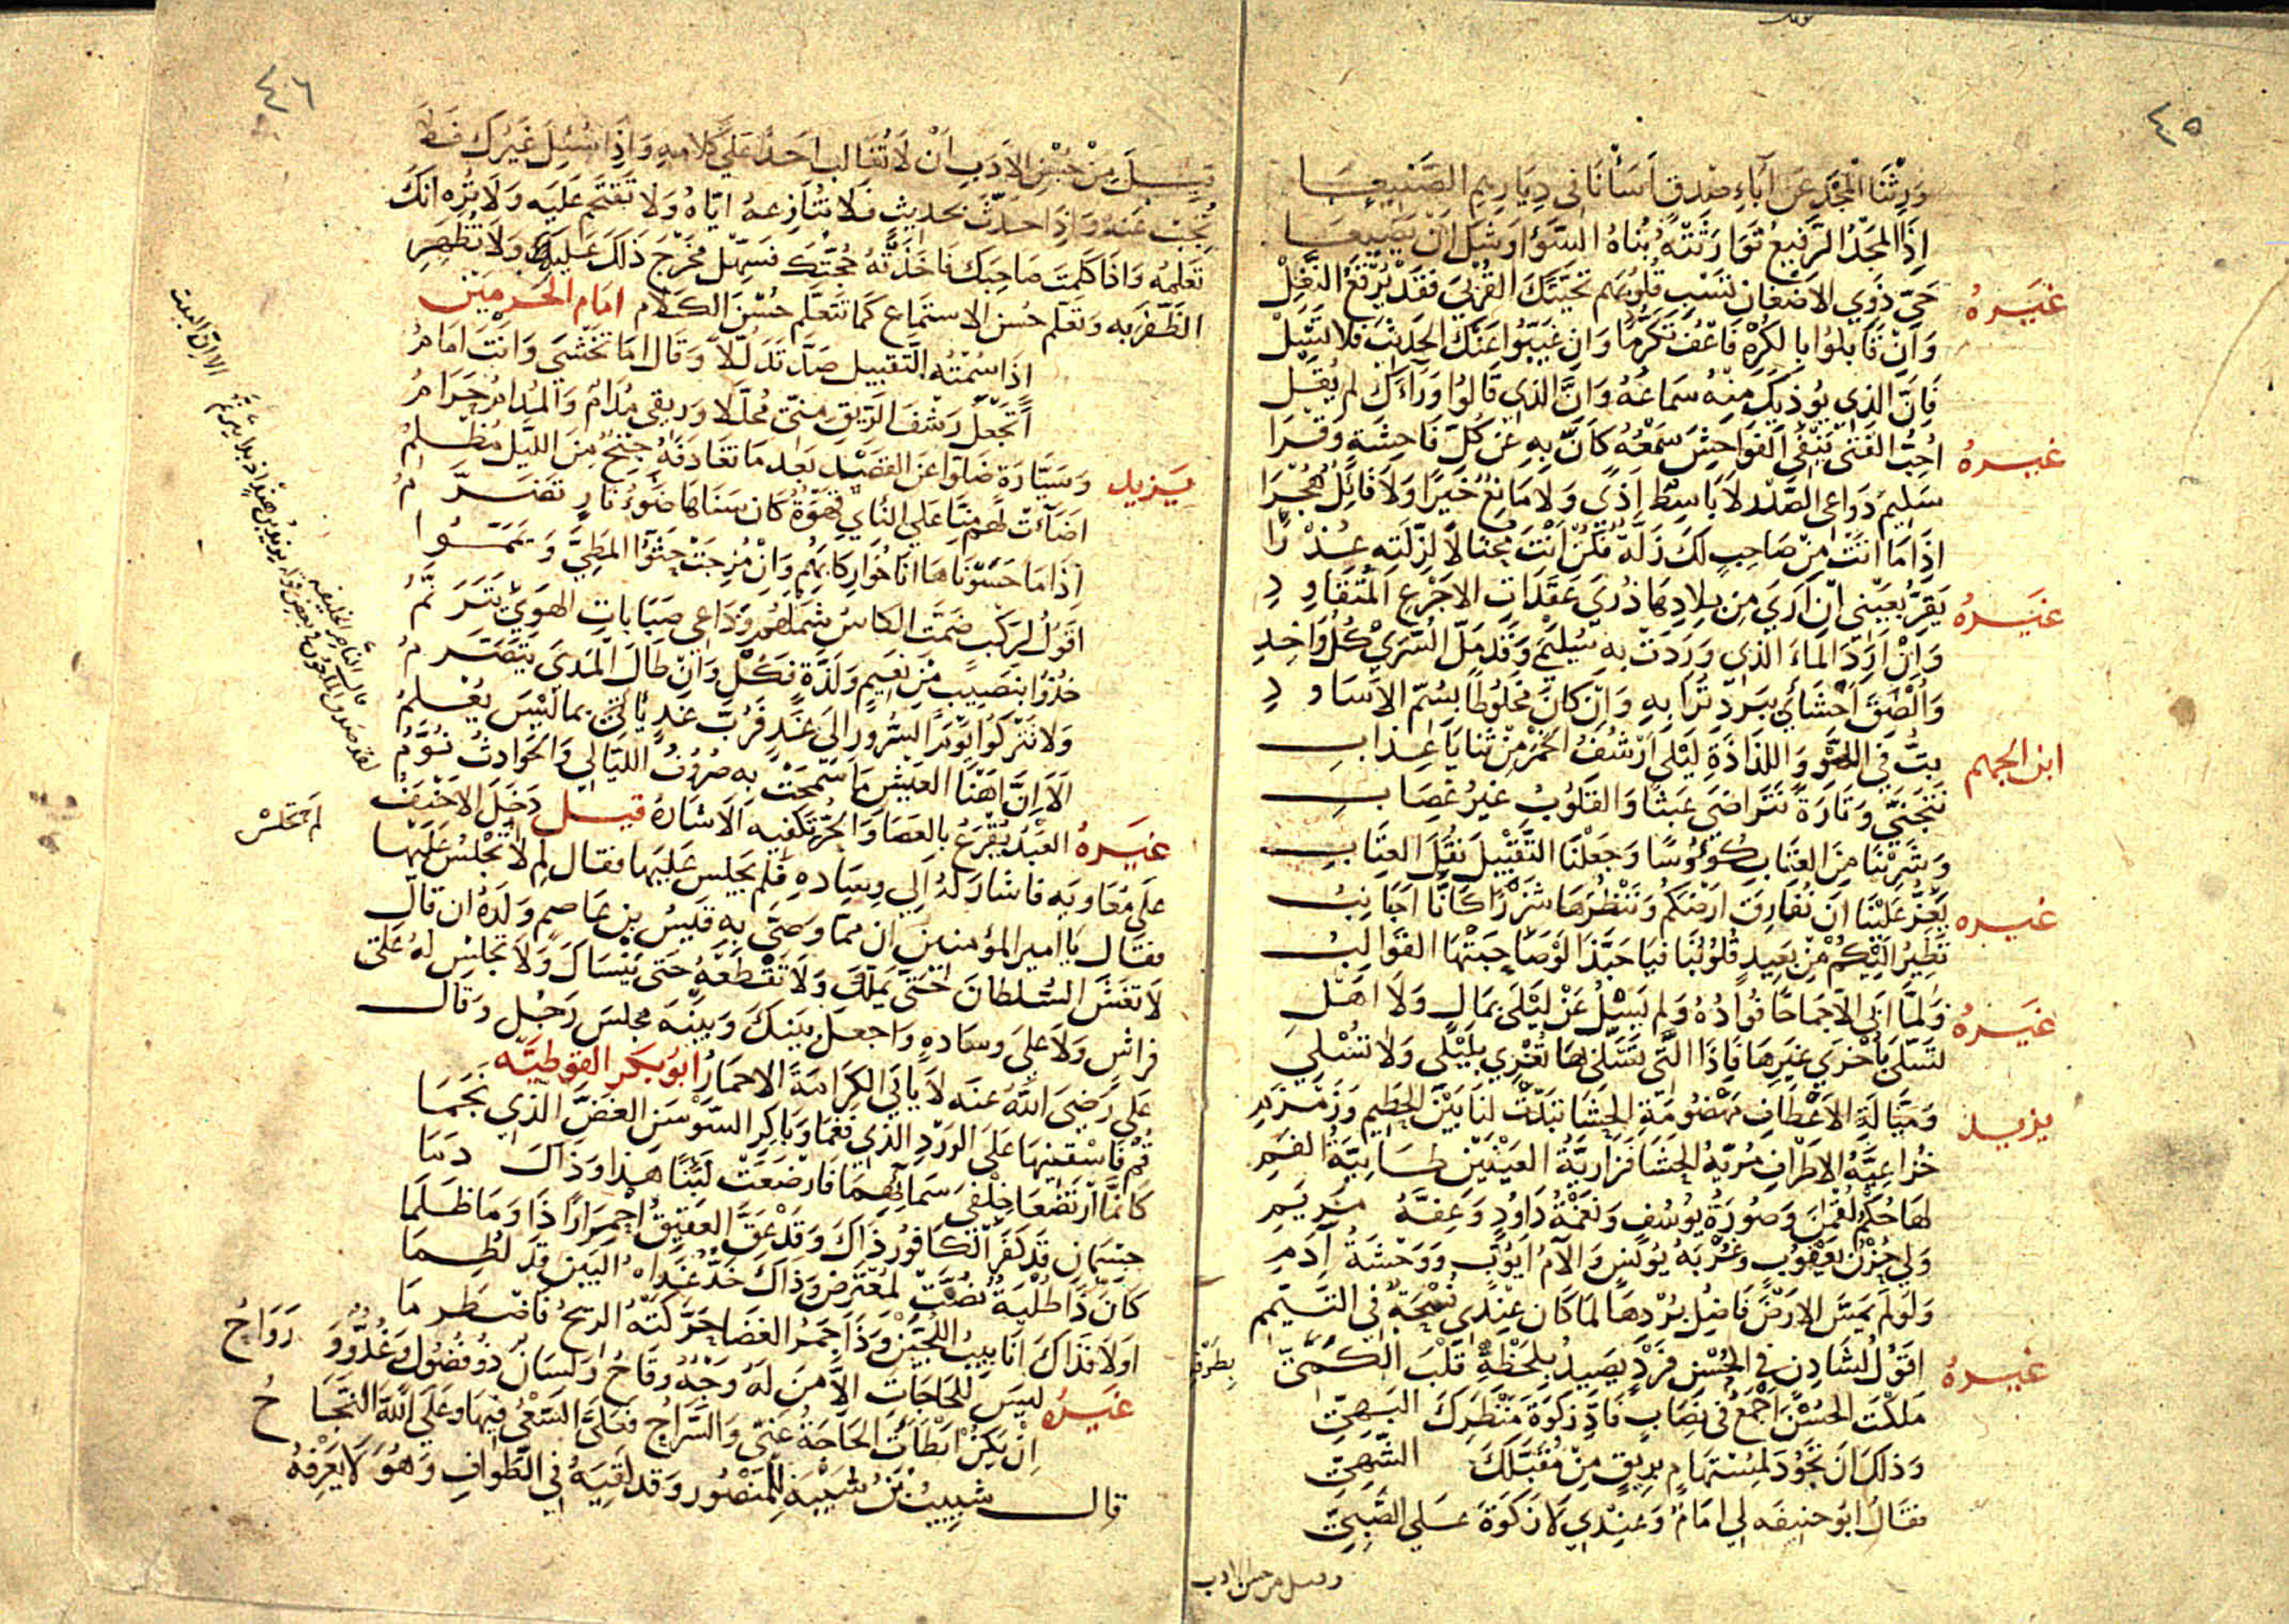 ٤٥
وَرِثْنَا المَجْدَ عَن آبَاءِ صِدقٍ اَسَأْنَا في دِيَارِهِم الصَّنِيعَا
اِذَا المَجْدُ الرَّفيعُ تَوَارَثَتْهُ بُنَاهُ السَّوْءِ اَوشَكَ اَنْ يَضِيعَا
غَيرهُ حَيِّ ذَوِي الاَضغَانِ تَسْبِ قُلُوبَهم تحيّتَكَ القُرْبَى فَقَدْ يُرْقَعُ النَّغِلْ
وَاِنْ قَابَلُوا بِالكُرْهِ فَاعْفُ تَكَرُّمًا وَاِن غَيَّبُوا عَنْكَ الحَدِيثَ فلا تَسَلْ
فَاِنَّ الَّذِي يُوذِيكَ مِنْهُ سَمَاعُهُ وَاِنَّ الَّذِي قَالُوا وَرَاءَكَ لم يُقَل
غيرهُ اُحِبُّ الفَتَى يَنْفِي الفَوَاحِشَ سَمْعُهُ كَاَنَّ بِهِ عَن كُلِّ فَاحِشَةٍ وَقْرَا
سَلِيمُ دَوَاعِي الصَّدْرِ لاَ بَاسِطٌ اَذًى وَلاَ مَانِعٌ خَيرًا وَلاَ قَائِلٌ هُجْرَا
اِذَا مَا اَتَتْ مِنْ صَاحِبٍ لَكَ زَلَّةٌ فَكُنْ اَنْتَ محْتَالاً لِزَلَّتِهِ عُذْرًا
غيرهُ يَقِرُّ بِعَيْني اَنْ اَرَى مِن بِلاَدِهَا ذُرَى عَقَدَاتِ الاَجْرَعِ المُتَقَاوِدِ
وَاَنْ اَرِدَ المَاءَ الَّذِي وَرَدَتْ بِهِ سُلَيْمَى وَقَد مَلَّ السُّرَى كُلُّ وَاخِدِ
وَاُلْصِقَ اَحْشَائي بِبَرْدِ تُرَابِهِ وَاِنْ كَانَ مَخْلُوطًا بِسُمِّ الاَسَاوِدِ
ابن الجهم بِتُّ في اللَّهْوِ وَاللَّذَاذَةِ لَيْلَى اَرْشُفُ الخَمْرَ مِنْ ثَنَايَا عِذَابِ
نَتَجَنَّى وَتَارَةً نَتَرَاضَى عَبَثًا وَالقُلُوبُ غَيرُ غِضَابِ
وَشَرِبْنَا مِنَ العِتَابِ كُؤُوسًا وَجَعَلْنَا التَّقْبِيلَ نَقْلَ العِتَابِ
غيره يَعِزُّ عَلَيْنَا اَنْ نُفَارِقَ اَرْضَكُم وَنَنْظُرَهَا شَزْرًا كَاَنَّا اَجَانِبُ
تَطِيرُ اِلَيْكُمْ مِنْ بَعِيدٍ قُلُوبُنَا فيَا حَبَّذَا لَوْ صَاحَبَتْهَا القَوَالِبُ
غيرهُ وَلَمَّا اَبَى اِلاَّ جِمَاحًا فُوَادُهُ وَلم يَسْلُ عَنْ لَيْلَى بِمَالٍ وَلاَ اَهْلِ
تَسَلَّى بِاُخْرَى غَيرِهَا فَاِذَا الَّتي تَسَلَّى بِهَا تُغْرِي بِلَيْلَى وَلاَ تُسْلِي
يزيد وَمَيَّالَةِ الاَعْطَافِ مَهْضُومَةِ الحَشَا تَبَدَّتْ لَنَا بَيْنَ الحَطِيمِ وَزَمْزَمِ
خُزَاعِيَّةُ الاَطْرَافِ مُرِّيَّةُ الحَشَا فَزَارِيَّةُ العَيْنَيْنِ طَائِيَّةُ الفَمِ
لَهَا حُكْمُ لُقْمٰنَ وَصُورَةُ يُوسُفَ وَنَغْمَةُ دَاوُدٍ وَعِفَّةُ مَرْيَمِ
وَلي حُزْنُ يَعْقُوبَ وَغُرْبَةُ يُونُسٍ وَآلاَمُ اَيُّوبٍ وَوَحْشَةُ آدَمِ
وَلَو لَم يَمَسَّ الاَرْضَ فَاضِلُ بُرْدِهَا لمَا كَان عِنْدِي فُسْحَةٌ في التَّيَمُّمِ
غيرهُ اَقُوْلُ لِشَادِنٍ في الحُسْنِ فَرْدٍ يَصِيدُ بِلَحْظِهِ قَلْبَ الكَمِيِّ
مَلَكْتَ الحُسْنَ اَجْمَعَ في نِصَابٍ فَاَدِّ زَكَوةَ مَنْظَرِكَ البَهِيِّ
وَذٰلِكَ اَنْ تَجُوْدَ لِمُسْتَهَامٍ بِرِيقٍ مِنْ مُقَبَّلِكَ الشَّهِيِّ
فَقَالَ اَبُو حَنِيفَه لي اِمَامٌ وَعِنْدِي لاَ زَكَوةَ عَلَى الصَّبِيِّ
بِطَرْفِهِ
وقيل من حسن الادب
٤٦
قِيلَ مِنْ حُسْنِ الاَدَبِ اَنْ لاَ تُغَالِبَ اَحَدًا عَلَى كَلاَمِهِ وَاِذَا سُئِلَ غَيْرُكَ فَلاَ
تُجِبْ عَنْهُ وَاِذَا حَدَّثَ بحَدِيثٍ فَلاَ تُنَازِعهُ اِيَّاهُ وَلاَ تَقْتَحِم عَلَيْه وَلاَ تُرِهِ اَنَّكَ
تَعْلَمُهُ وَاِذَا كَلَّمْتَ صَاحِبَكَ فَاَخَذَتْهُ حُجَّتُكَ فَسَهِّل مَخْرَجَ ذٰلِكَ عَلَيْهِ وَلاَ تُظْهِرِ
الظَّفَرَ بِه وَتَعَلَّم حُسنَ الاِسْتِمَاعِ كَمَا تَتَعَلَّم حُسْنَ الكَلاَم امَام الحَرمَيْن
اِذَا سُمْتُهُ التَّقْبِيل صَدَّ تَدَلُّلاً وَقَالَ اَمَا تَخْشَى وَاَنْتَ اِمَامُ
اَتَجْعَلُ رَشْفَ الرِّيق مِنِّي مُحَلَّلا وَرِيقي مُدَامٌ وَالمُدَامُ حَرَامُ
يَزيد وَسَيَّارَةٍ ضَلّوا عَنِ القَصْدِ بَعْدَ مَا تَغَادَفَهُ جِنْحٌ مِنَ اللَّيْلِ مُظْلِمُ
اَضَاءَتْ لَهُم مِنَّا عَلى النَّايِ قَهْوَةٌ كَاَنَّ سَنَاهَا ضَوْءُ نَارٍ تَضَرَّمُ
اِذَا مَا حَسَوْنَاهَا اَنَاخُوا رِكَابَهُمْ وَاِنْ مُزِجَتْ حَثُّوا المَطِيَّ وَيَمَّمُوا
اَقُوْلُ لِرَكْبٍ ضَمَّتِ الكَاسُ شَمْلَهُم وَدَاعِي صَبَابَاتِ الهَوَى يَتَرَنَّمُ
خُذُوا بِنَصِيبٍ مِنْ نَعِيمٍ وَلَذَّةٍ فَكُلٌّ وَاِنْ طَالَ المَدَى يَتَصَرَّمُ
وَلاَ تَتْرُكُوا يَوْمَ السُّرُورِ اِلَى غَدٍ فَرُبَّ غَدٍ يَأتي بما لَيْسَ يُعْلَمُ
اَلاَ اِنَّ اَهْنَا العَيْشِ مَا سَمَحَتْ بِهِ صُرُوْفُ اللَّيَالِي وَالحَوَادِثُ نُوَّمُ
غيرهُ العَبْدُ يُقْرَعُ بِالعَصَا وَالحُرُّ تَكْفِيهِ الاِشَارَهْ قيل دَخَلَ الاَحْنَفُ
عَلَى مُعَاوِيَه فَاَشَارَ لَهُ اِلَى وِسَادِهِ فَلَم يَجْلِس عَلَيْهَا فَقَالَ لِم لاَ تَجْلِسُ عَلَيْهَا
فَقَال يَا اَمِير المؤمنين اِنَّ مِمَّا وَصَّى بِهِ قَيْسُ بن عَاصِم وَلَدَهُ اَن قَالَ
لاَ تَغْشَ السُّلطَانَ حَتَّى يَمَلَّكَ وَلاَ تَقْطَعْهُ حَتَّى يَنْسَاكَ وَلاَ تَجْلِسْ لَهُ عَلَى
فِرَاشٍ وَلاَ عَلى وِسَادِهِ وَاجْعَلْ بَيْنَكَ وَبَيْنَهُ مَجْلِسَ رَجُلٍ وَقَال
عَلي رَضِيَ اللّٰهُ عَنْه لاَ يَأبَى الكَرَامَةَ الاَّ حِمَارٌ اَبُو بَكر القوطيّه
قُمْ فَاسْقِنِيهَا عَلَى الوَرْدِ الَّذِي فَغَمَا وَبَاكِرِ السَّوْسَن الغَضَّ الَّذِي نَجَمَا
كَاَنَّمَا ارْتَضَعَا خِلْفَي سَمَائِهِمَا فَاَرْضَعَتْ لَبَنًا هَذَا وَذَاكَ دَمَا
جِسْمَانِ قَد كَفَّرَ الكَافُورُ ذَاكَ وَقَدْ عَقَّ العَقِيقُ احْمِرَارًا ذَا وَمَا ظَلَمَا
كَاَنَّ ذَا طُلْيَةٌ نُصَّتْ لِمُعْتَرِضٍ وَذَاكَ خَدٌّ غَدَاةَ البَيْنِ قَدْ لُطِمَا
اَوْ لاَ فَذَاكَ اَنَابِيبُ اللُّجَيْنِ وَذَا جَمْرُ الغَضَا حَرَّكَتْهُ الرِّيحُ فَاضْطَرَمَا
غيرهُ لَيْسَ لِلْحَاجَاتِ اِلاَّ مَنْ لَهُ وَجْهٌ وَقَاحُ وَلِسَانٌ ذُو فُضُوْلٍ وَغُدُوٌّ وَرَوَاحُ
اِنْ يَكُنْ اَبْطَأَتِ الحَاجَةُ عَنِّي وَالسَّرَاحُ فَعَلَيَّ السَّعْيُ فِيهَا وَعَلَى اللّٰهِ النَّجَاحُ
قال شَبِيبُ بْنُ شَيْبَةَ لِلْمَنْصُور وَقَد لَقِيَهُ في الطَّوَافِ وَهُوَ لاَ يَعْرِفُهُ
لَم تجلسْ